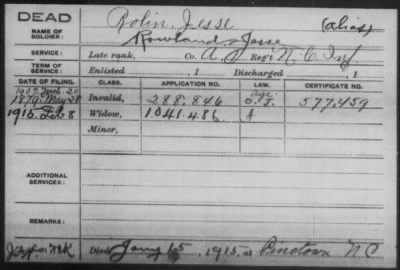 DEAD
NAME OF SOLDIER: Rolin, Jesse (alias)
Rowland, Jesse
SERVICE: Late rank, Co. A, Reg't N. C. Inf
TERM OF SERVICE: Enlisted , 1 Discharged , 1
DATE OF FILING. CLASS. APPLICATION NO. LAW. CERTIFICATE NO.
1879. May 28 Invalid, 288.846 577.459
1915. Feb 8 Widow, 1041.486 A
Minor,
ADDITIONAL SERVICES:
REMARKS:
Died Jany 15, 1915, at Pinetown NC